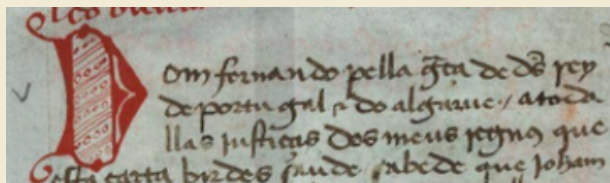 Dom fernando pella gᷓca de ds̃ rey
de portugal ⁊ do algarue / a toda
llas justiças dos meus regnos que
esta carta birdes saude sabede que Joham